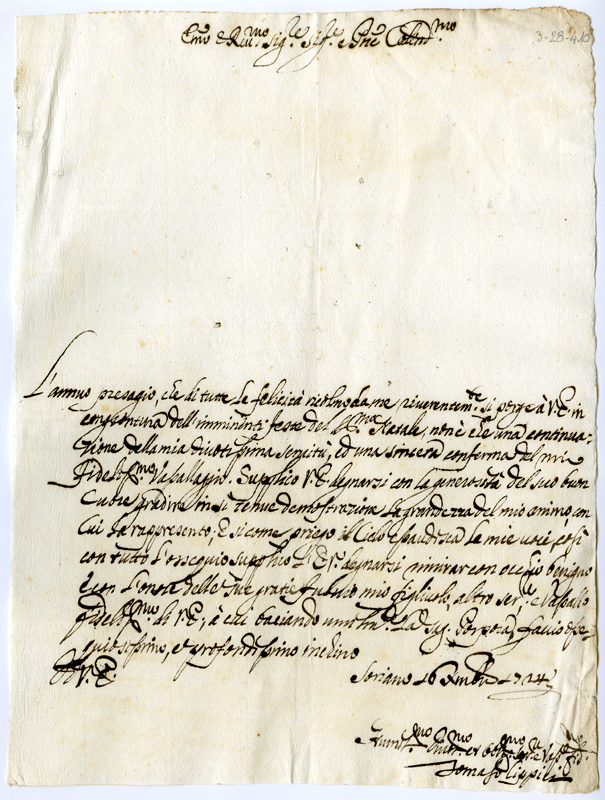 Em.o e Rev.mo Sig.re Sig.re e P̃ne Col.mo
3-28-4.10
L'annuo presagio, che di tutte le felicità da me riverentem.te si porge à V.E. in
congiontura dell'imminenti feste del S.mo Natale, non è che una continua=
tione della mia divotissima servitù, ed una sincera conferma del mio
fidelis.mo Vasallaggio. Supplico V.E. degnarsi con la generosità del suo buon
Cuore gradire in sì tenue demostrazione la grandezza del mio animo, con
cui la rappresento. E sì come priego il Cielo esaudisca le mie voci, così
con tutto l'ossequio supplico l'E.V. degnarsi mirar con occhio benigno
e con l'onor delle sue gratie mio figliuolo, altro ser.e e Vasallo
fidelis.mo di V.E., à cui baciando la Sag. Porpora, faccio osse=
quiosissimo, et profondissimo inchino
D V.E.
Soriano 16 Xmbre 1724
Humil.mo Div.mo et Obl.mo
Tomaso Lippici